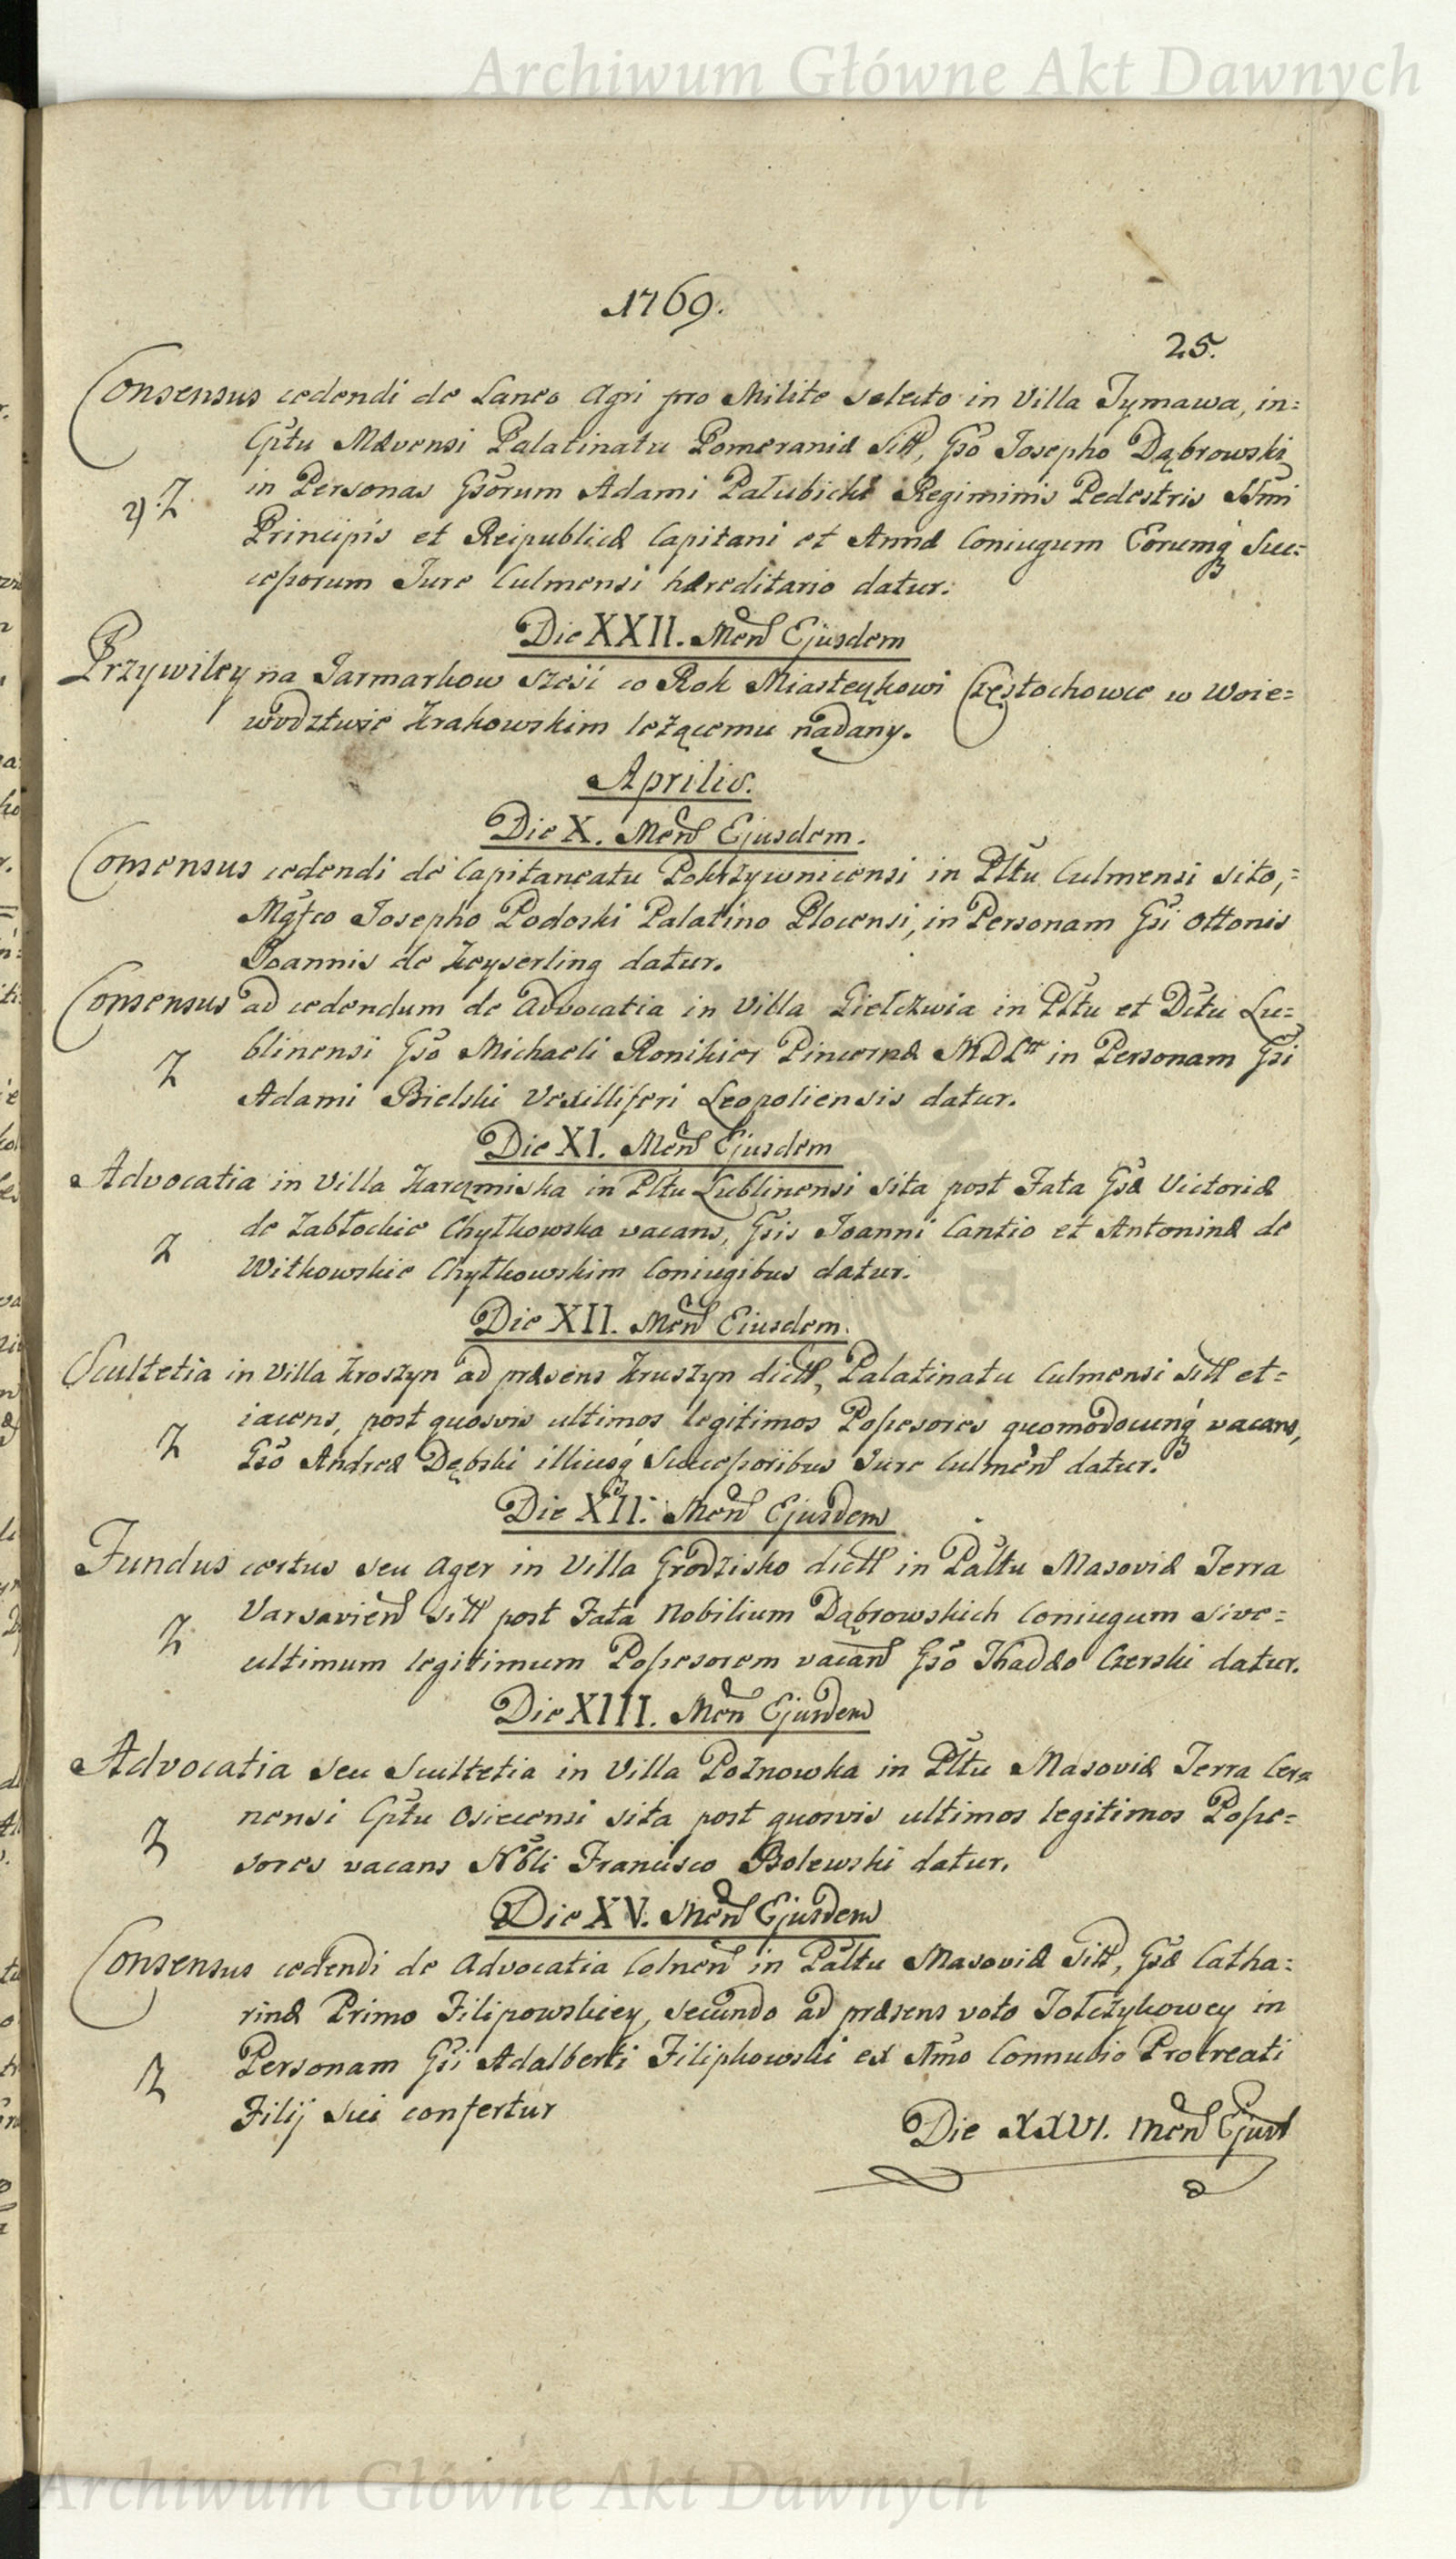 Archiwum Główne Akt Dawnych
1769.
25.
Consensus cedendi de Laneo Agri pro Milite selecto in Villa Tymawa, in=
Cptu Mævensi Palatinatu Pomeraniæ Sitt, Gso Josepho Dąbrowski
2) Z. in Personas Gsorum Adami Pałubicki Regiminis Pedestris SSmi
Principis et Reipublicæ Capitani et Annæ Coniugum Eorumq Suc=
cessorum Jure Culmensi hæreditario datur.
Die XXII. Men Ejusdem
Przywiley na Jarmarkow sześć co Rok Miasteczkowi Częstochowie w Woie=
wodztwie Krakowskim leżącemu nadany.
Aprilis.
Die X. Men Ejusdem.
Consensus cedendi de Capitaneatu Pokrzywnicensi in Pltu Culmensi sito,=
Mgfco Josepho Podoski Palatino Plocensi, in Personam Gsi Ottonis
Joannis de Keyserling datur.
Consensus ad cedendum de Advocatia in Villa Giełczwia in Pltu et Dctu Lu=
Z blinensi Gso Michaeli Ronikier Pincernæ MDL in Personam Gsi
Adami Bielski Vexilliferi Leopoliensis datur.
Die XI. Men Ejusdem
Advocatia in Villa Karczmiska in Pltu Lublinensi sita post Fata Gsæ Victoriæ
Z de Zabłockie Chytkowska vacans, Gsis Joanni Cantio et Antoninæ de
Witkowskie Chytkowskim Coniugibus datur.
Die XII. Men Eiusdem.
Scultetia in Villa Kroszyn ad præsens Kruszyn dictt, Palatinatu Culmensi sitt et=
Z iacens, post quosvis ultimos legitimos Possesores quomodocunq vacans,
Gso Andreæ Dębski illiusq Successoribus Jure Culmen datur.
Die XII. Men Ejusdem
Fundus certus seu Ager in Villa Grodzisko dictt in Paltu Masoviæ Terra
Z Varsavien sitt post Fata Nobilium Dąbrowskich Coniugum sive=
ultimum legitimum Possesorem vacan Gso Thadæo Czerski datur.
Die XIII. Men Ejusdem
Advocatia seu Scultetia in Villa Poznowka in Pltu Masoviæ Terra Cer=
Z nensi Cptu Osiecensi sita post quosvis ultimos legitimos Posse=
sores vacans Nbli Francisco Bolewski datur.
Die XV. Men Ejusdem
Consensus cedendi de Advocatia Colnen in Paltu Masoviæ Sitt, Gsæ Catha=
rinæ Primo Filipowskiey, secundo ad præsens voto Tołczykowey in
Z Personam Gsi Adalberti Filipkowski ex Connubio Procreati
Filij sui confertur
Die XXVI. Men Ejusd
Archiwum Główne Akt Dawnych